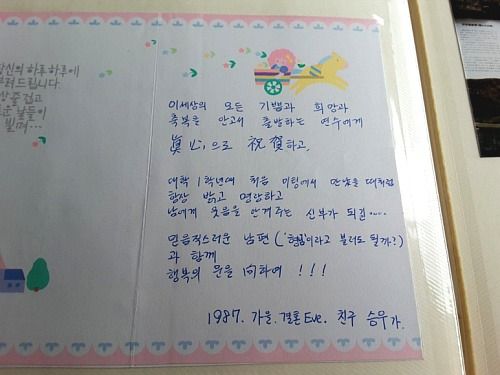 하루하루에
드립니다
걷고
이세상의 모든 기쁨과 희망과
축복을 안고서 출발하는 연수에게
眞心으로 祝賀하고,
대학 1학년때 처음 미팅에서 만났을 때처럼
항상 밝고 명랑하고
남에게 웃음을 안겨주는 신부가 되길.....
믿음직스러운 남편 ('형'이라고 불러도 될까?)
과 함께
행복의 문을 向하여 !!!
1987. 가을. 결혼 Eve. 친구 승우가.